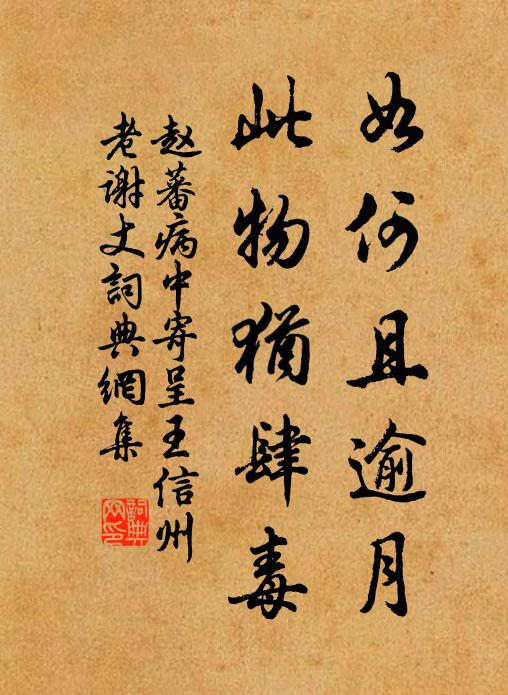 如何且逾月
此物猶肆毒
赵蕃病中寄呈王信州
老谢丈詞典網集
詞典
网印